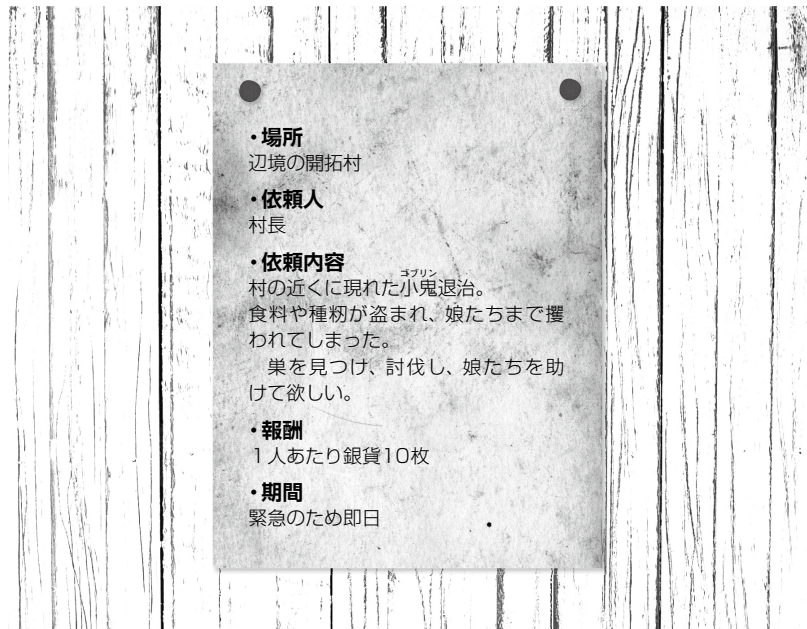 ・場所
辺境の開拓村
・依頼人
村長
・依頼内容
ゴブリン
村の近くに現れた小鬼退治。
食料や種籾が盗まれ、娘たちまで攫
われてしまった。
　巣を見つけ、討伐し、娘たちを助
けて欲しい。
・報酬
１人あたり銀貨10枚
・期間
緊急のため即日